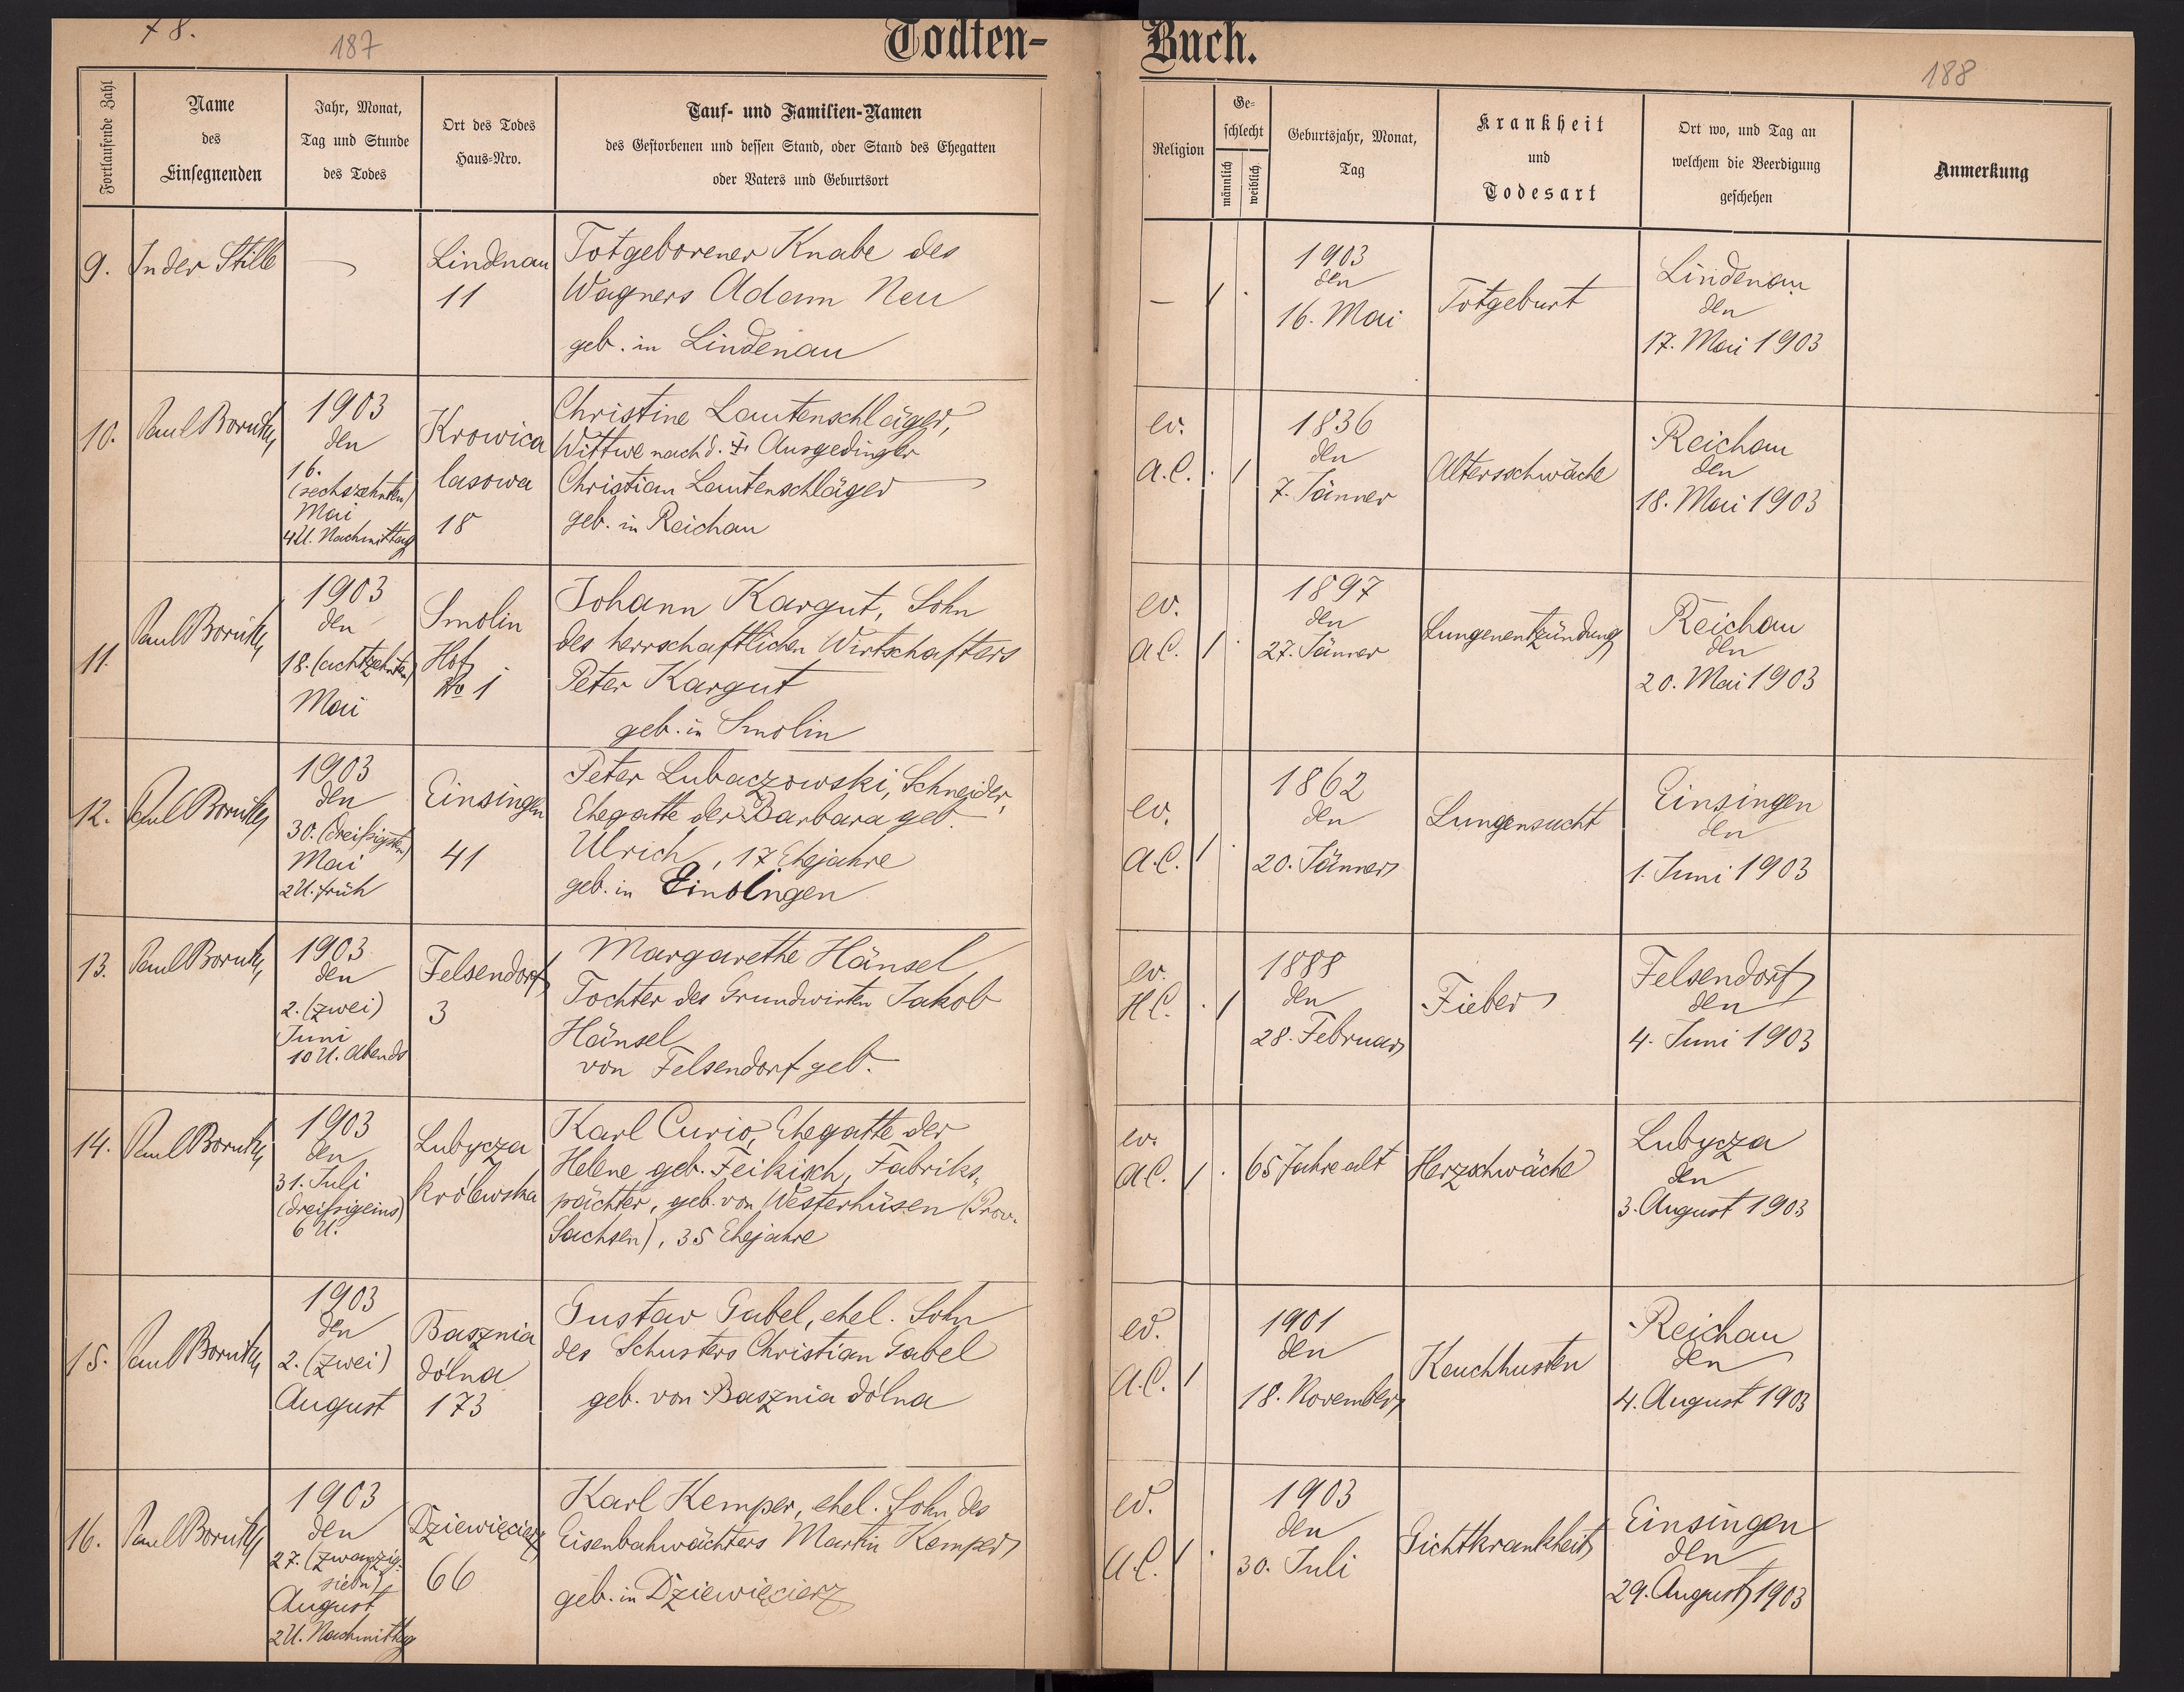 78.
187
Todten-
Buch.
188
Fortlaufende Zahl
Name
des
Einsegnenden
Jahr, Monat,
Tag und Stunde
des Todes
Ort des Todes
Haus-Nro.
Tauf- und Familien-Namen
des Gestorbenen und dessen Stand, oder Stand des Ehegatten
oder Vaters und Geburtsort
Religion
Ge-
schlecht
männlich
weiblich
Geburtsjahr, Monat,
Tag
Krankheit
und
Todesart
Ort wo, und Tag an
welchem die Beerdigung
geschehen
Anmerkung
9.
In der Stille
—
Lindenau
11
Totgeborener Knabe des
Wagners Adam Neu
geb. in Lindenau
—
/ .
1903
den
16. Mai
Totgeburt
Lindenau
den
17. Mai 1903
10.
Paul Boruty
1903
den
16.
(sechszehnten)
Mai
4 U. Nachmittag
Krowica
lasowa
18
Christine Lautenschläger,
Wittwe nach d. † Ausgedinger
Christian Lautenschläger
geb. in Reichau
ev.
A.C.
. /
1836
den
7. Jänner
Altersschwäche
Reichau
den
18. Mai 1903
11.
Paul Boruty
1903
den
18. (achtzehnten)
Mai
Smolin
Hof
No 1
Johann Kargut, Sohn
des herrschaftlichen Wirtschafters
Peter Kargut
geb. in Smolin
ev.
A.C.
/ .
1897
den
27. Jänner
Lungenentzündung
Reichau
den
20. Mai 1903
12.
Paul Boruty
1903
den
30. (dreißigsten)
Mai
2 U. früh
Einsingen
41
Peter Lubaczowski, Schneider,
Ehegatte der Barbara geb.
Ulrich, 17 Ehejahre
geb. in Einsingen
ev.
A.C.
/ .
1862
den
20. Jänner
Lungensucht
Einsingen
den
1. Juni 1903
13.
Paul Boruty
1903
den
2. (zwei)
Juni
10 U. Abends
Felsendorf
3
Margarethe Hänsel
Tochter des Grundwirten Jakob
Hänsel
von Felsendorf geb.
ev.
H.C.
. /
1888
den
28. Februar
Fieber
Felsendorf
den
4. Juni 1903
14.
Paul Boruty
1903
den
31. Juli
(dreißigeins)
6 U.
Lubycza
królewska
Karl Curio, Ehegatte der
Helene geb. Feikisch, Fabriks-
pächter, geb. von Westerhüsen (Prov.
Sachsen), 35 Ehejahre
ev.
A.C.
/ .
65 Jahre alt
Herzschwäche
Lubycza
den
3. August 1903
15.
Paul Boruty
1903
den
2. (zwei)
August
Basznia
dólna
173
Gustav Gabel, ehel. Sohn
des Schusters Christian Gabel
geb. von Basznia dólna
ev.
A.C.
/
1901
den
18. November
Keuchhusten
Reichau
den
4. August 1903
16.
Paul Boruty
1903
den
27. (zwanzig-
sieben)
August
2 U. Nachmittag
Dziewięcierz
66
Karl Kemper, ehel. Sohn des
Eisenbahnwächters Martin Kemper
geb. in Dziewięcierz
ev.
A.C.
/ .
1903
den
30. Juli
Gichtkrankheit
Einsingen
den
29. August 1903